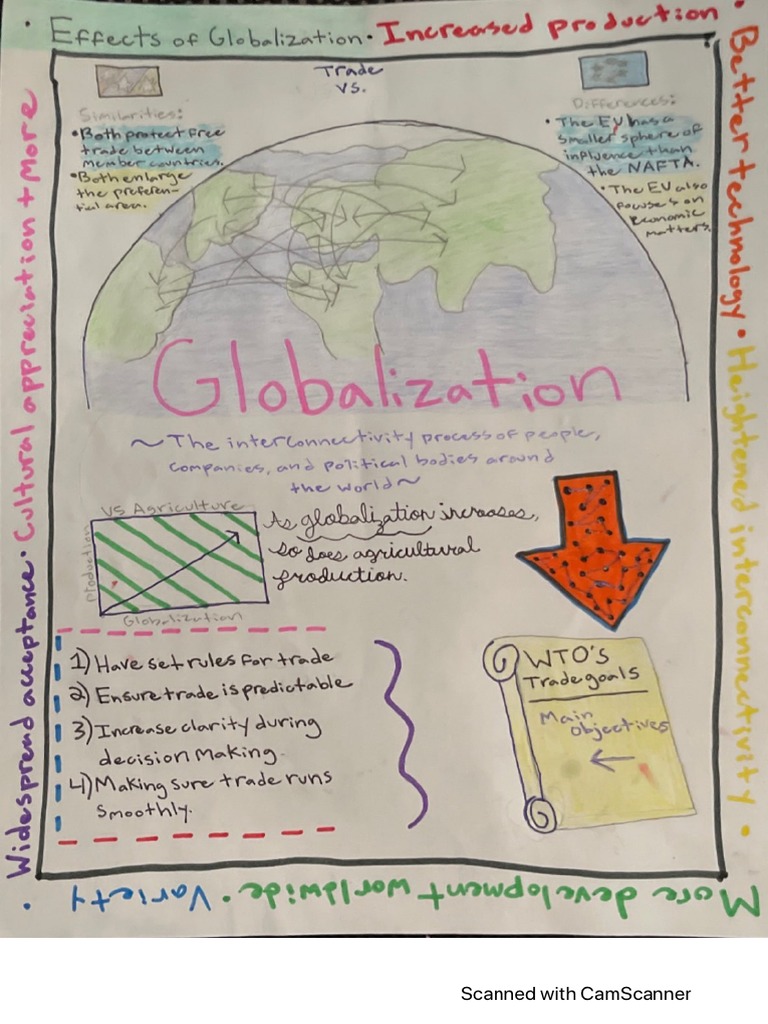 • Effects of Globalization • Increased production •
Better technology • Heightened interconnectivity •
More development worldwide • Variety •
Widespread acceptance • Cultural appreciation + More
Trade
vs.
Similarities:
• Both protect free
trade between
member countries.
• Both enlarge
the preferen-
tial area.
Differences:
• The EU has a
smaller sphere of
influence than
the NAFTA.
• The EU also
focuses on
economic
matters.
Globalization
~The interconnectivity process of people,
companies, and political bodies around
the world~
VS Agriculture
production
Globalization
As globalization increases,
so does agricultural
production.
1) Have set rules for trade
2) Ensure trade is predictable
3) Increase clarity during
decision making.
4) Making sure trade runs
smoothly.
WTO's
Trade goals
Main
objectives
Scanned with CamScanner